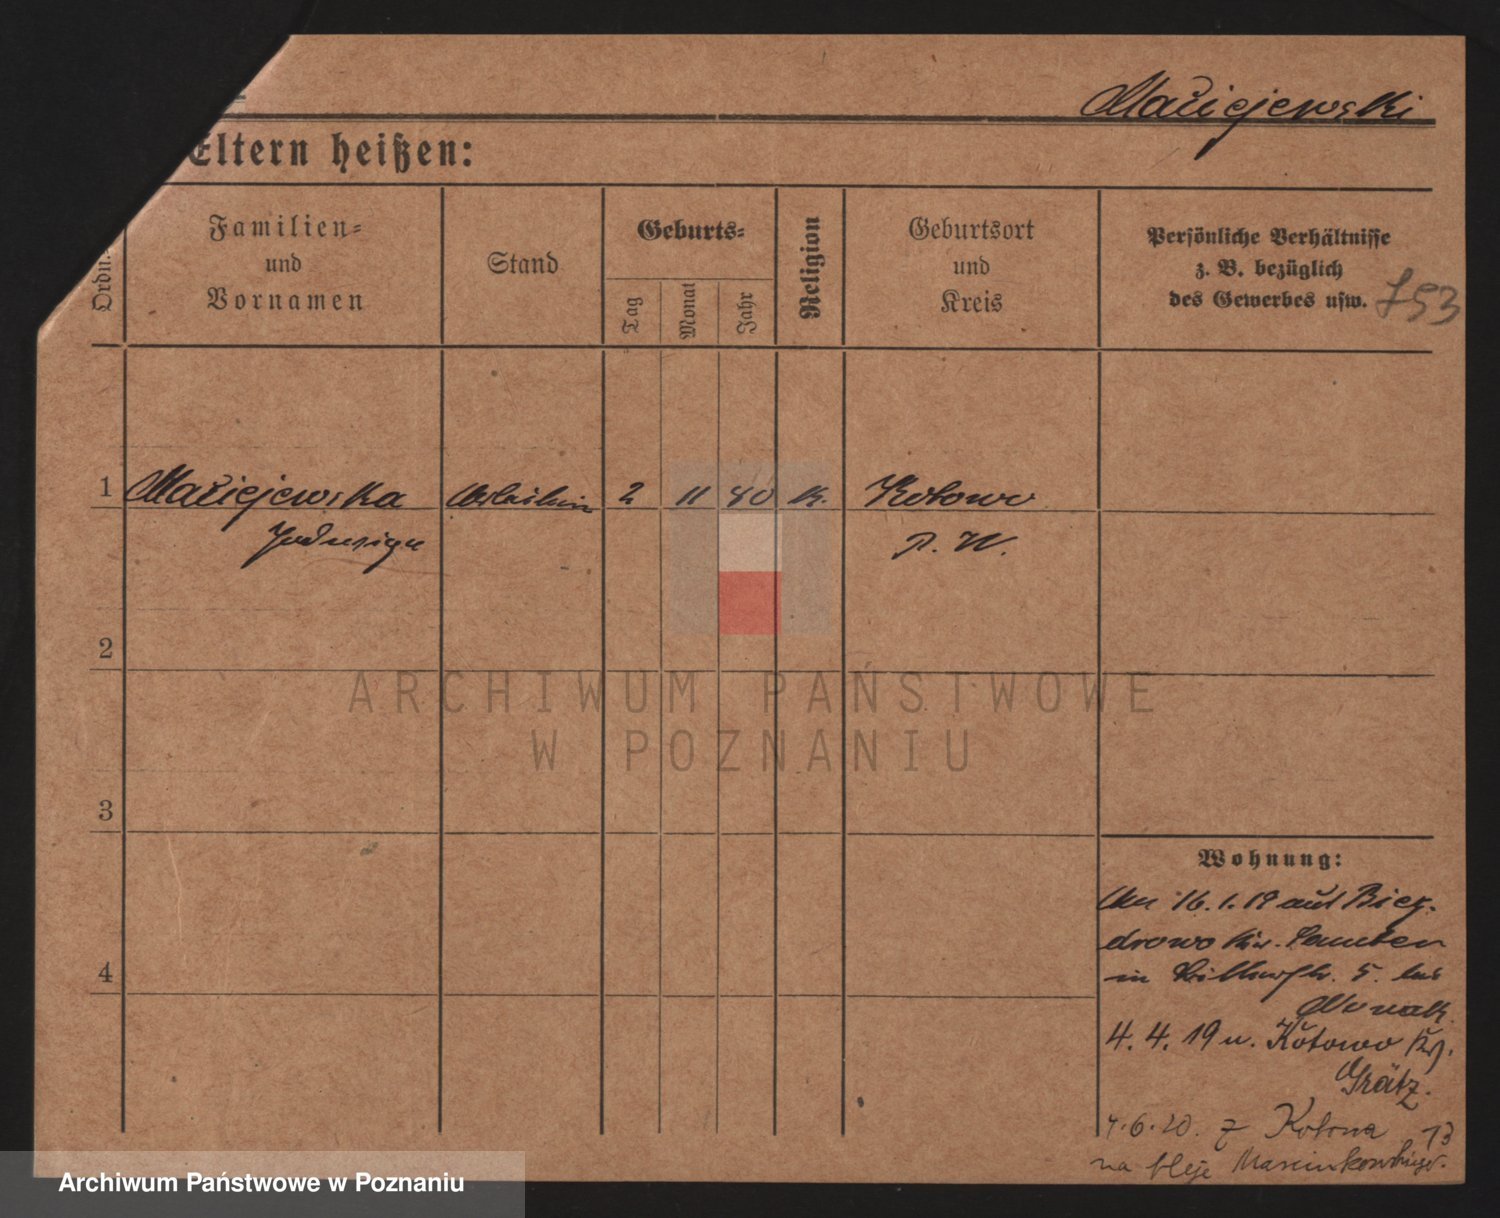 Maciejewski
Eltern heißen:
Ordn.
Familien-
und
Vornamen
Stand
Geburts-
Tag
Monat
Jahr
Religion
Geburtsort
und
Kreis
Persönliche Verhältnisse
z. B. bezüglich
des Gewerbes usw.
753
1 Maciejewska Arbeiterin 2 11 80 K. Kotowo
Jadwiga P. W.
2
3
4
ARCHIWUM PAŃSTWOWE
W POZNANIU
Wohnung:
An 16.1.19 aus Bieg-
drowo Krs. Samter
in 5. bei
Nowak.
4. 4. 19 n. Kotowo Krs.
Grätz.
4.6.20. z Kotowa
na Aleje Marcinkowskiego. 13
Archiwum Państwowe w Poznaniu